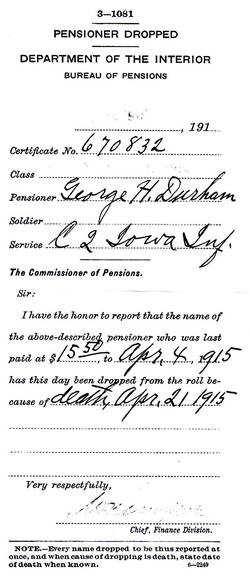 3—1081
PENSIONER DROPPED
DEPARTMENT OF THE INTERIOR
BUREAU OF PENSIONS
, 191
Certificate No. 670832
Class
Pensioner George H. Durham
Soldier
Service C 2 Iowa Inf.
The Commissioner of Pensions.
Sir:
I have the honor to report that the name of
the above-described pensioner who was last
paid at $15.50, to Apr. 4, 1915
has this day been dropped from the roll be-
cause of death, Apr. 21 1915
Very respectfully,
Chief, Finance Division.
NOTE.—Every name dropped to be thus reported at
once, and when cause of dropping is death, state date
of death when known.
6—2249